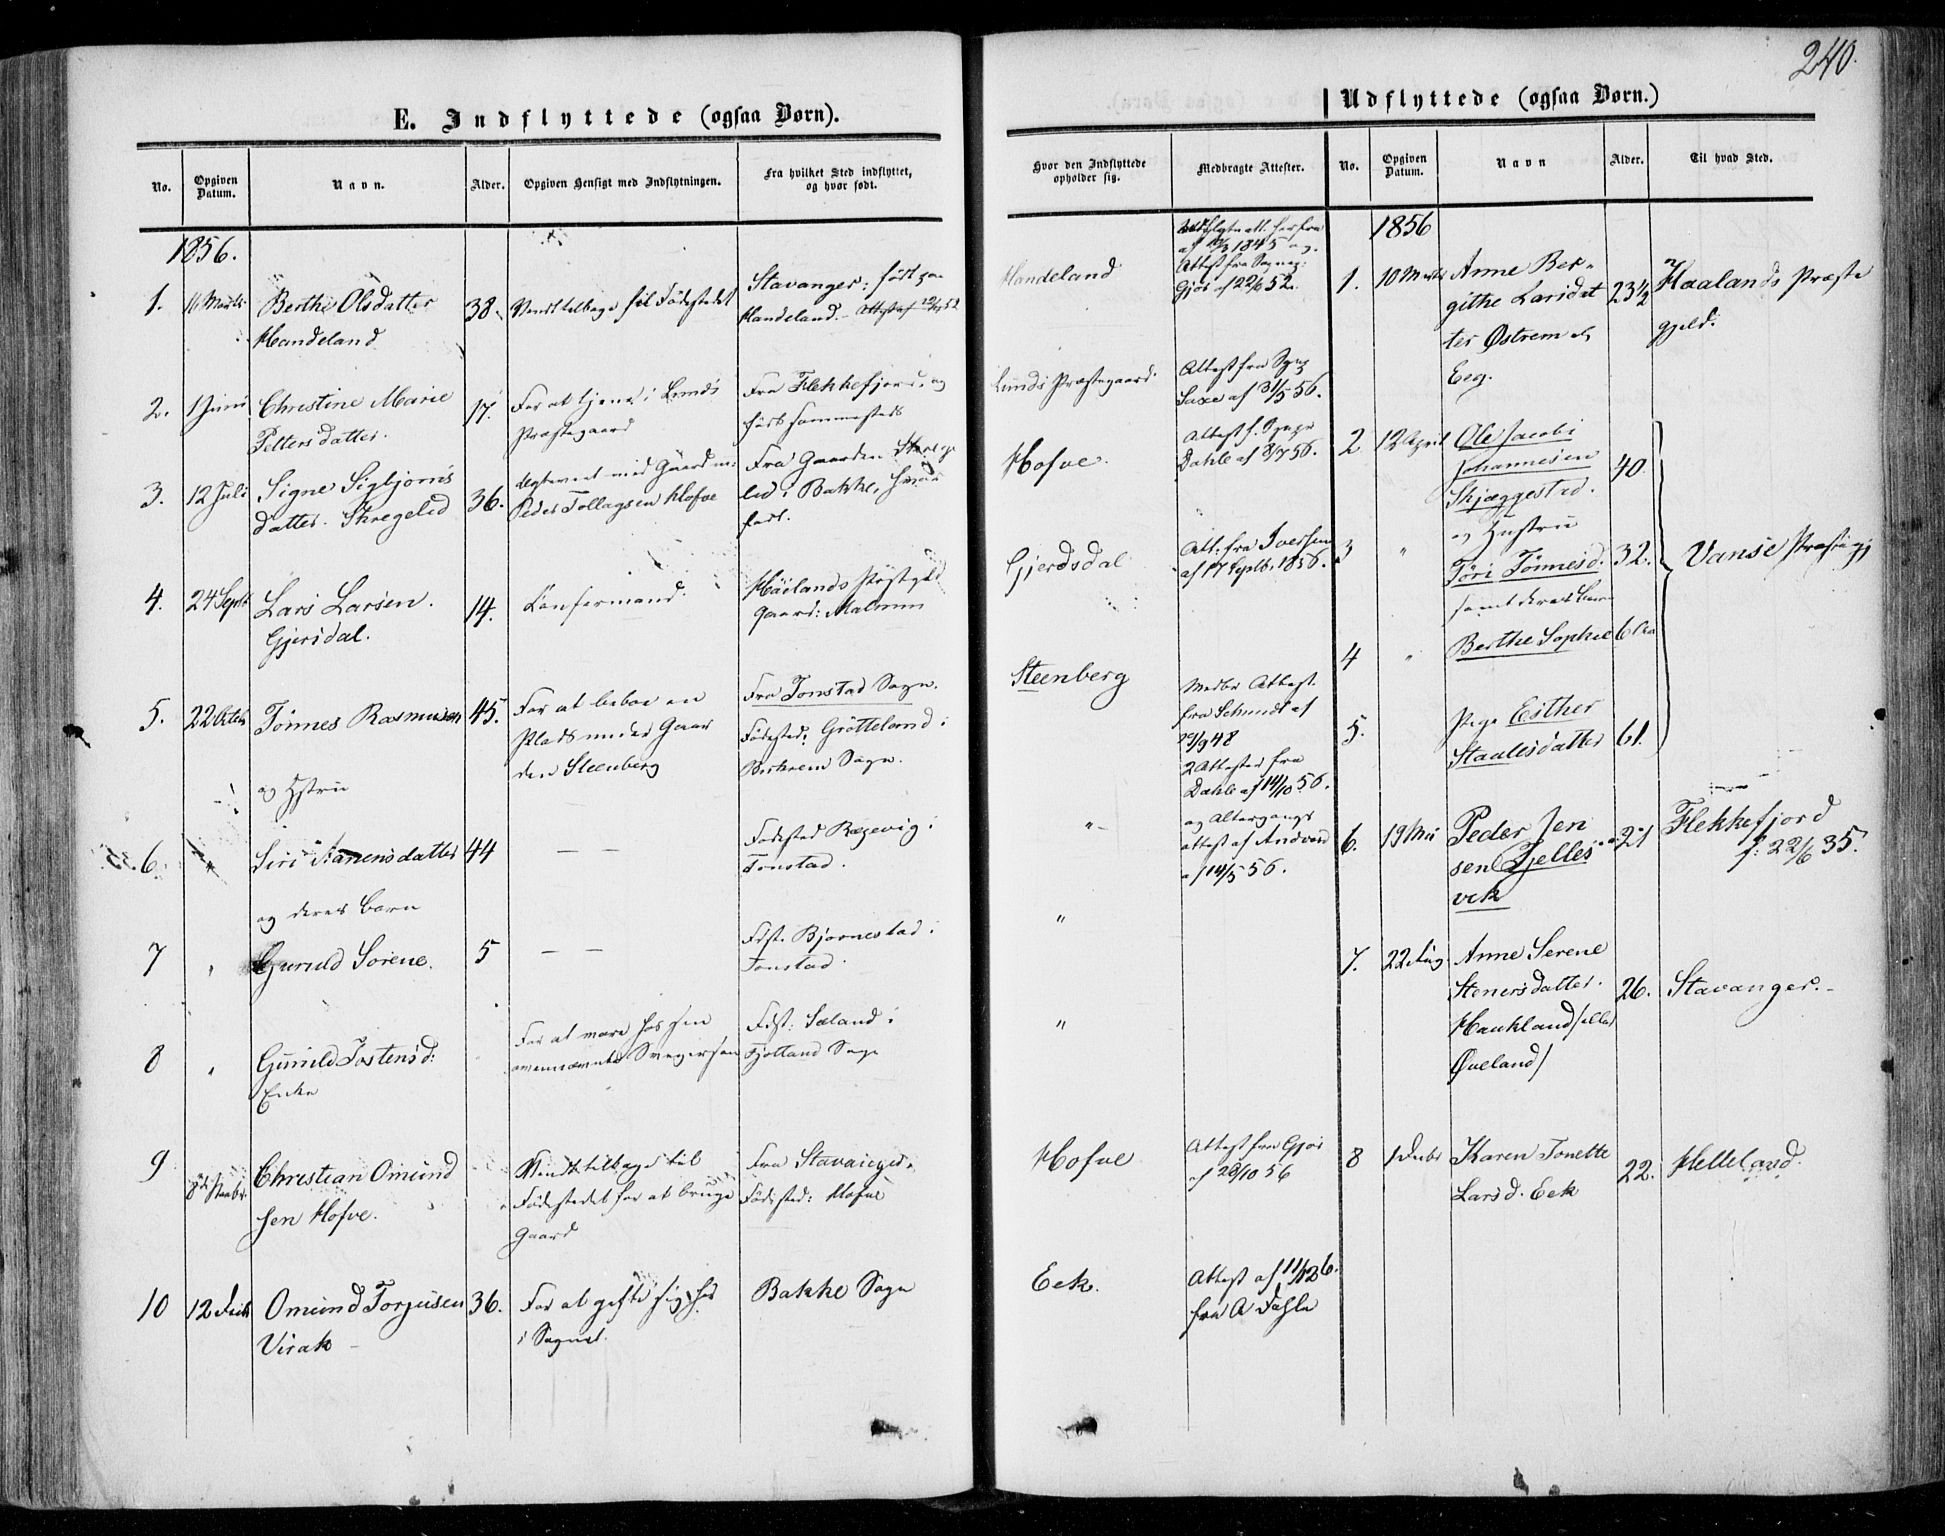 240.
E. Indflyttede (ogsaa Børn).
No. Opgiven Datum. Navn. Alder. Opgiven Hensigt med Indflytningen. Fra hvilket Sted indflyttet, og hvor født.
1856.
1. 16 Marts Berthe Olsdatter 38. Vendt tilbage til Fødestedet Stavanger; født paa
Handeland Handeland. Attest af
2. 1 Juni Christine Marie 17. For at tjene i Lunds Fra Flekkefjord, og
Pettersdatter. Præstegaard født sammesteds
3. 12 Juli Signe Sigbjørns 36. med Gaardm: Fra Gaarden
datter. Skregelid Peder Tollagsen Hofve lid i Bakke, hvor
født.
4. 24 Sept Lars Larsen. 14. Confirmand. Haalands Præstgjld
Gjersdal. Gaard: Malmin
5. 22 Octbr Tønnes Rasmusen 45. For at beboe en Fra Tonstad Sogn.
Plads under Gaar Fødested: Grøtteland i
den Steenberg Birkrem Sogn.
og Hstru
6. Siri Aanensdatter 44 — — Fødested Røgevig i
Tonstad.
og deres Barn
7 " Gunild Sørene. 5 — — Fdst. Bjørnestad i
Tonstad.
8 " Gunild Jostensd: For at være hos sin Fdst: Sæland i
Enke ovennævnte Svigersøn Fjotland Sogn
9 8de Christian Omund Vendt tilbage til Fra Stavanger.
sen Hofve. Fødestedet for at bruge Fødested: Hofve
Gaard
10 12 Decbr Omund Torjusen 36. For at gifte sig her Bakke Sogn
Virak i Sognet.
Hvor den Indflyttede opholder sig. Medbragte Attester.
Handeland Udflytn att. herfra
af 1845 og
Attest fra Sognep:
Gjør af 22/6 52.
Lunds Præstegaard. Attest fra Sgnp
Saxe af 31/5 56.
Hofve. Attest f. Sgnpr
Dahle af 8/7 56.
Gjerdsdal Att. fra Iversen
af 17 Septb. 1856.
Steenberg Medbr Attest
fra Schmidt af
29/9 48
2 Attester fra
Dahle af 14/10 56.
" og Altergangs
attest af
af 14/5 56.
"
"
Hofve Attest fra Gjør
af 28/10 56
Eek. Attest af
fra A Dahle
Udflyttede (ogsaa Børn.)
No. Opgiven Datum. Navn Alder. Til hvad Sted.
1856
1. 10 Marts Anne Ber- 23½ Haalands Præste
githe Larsdat gjeld.
ter Østrem el
Eeg.
2 12 April Ole Jacobi 40
Johannesen
Skjæggestad.
og Hustru
3 " Tøri Tønnesd. 32. Vanse Præstegj
samt deres Barn
4 " Berthe Sophie 6
5. Pige Esther
Staalesdatter 61.
6. 19 Mai Peder Jen 21 Flekkefjord
sen Tjelles f: 22/6 35.
vek
7. 22 Aug Anne Serene
Stenersdatter. 26. Stavanger.
Haukland /eller
Øveland/
8 1 Decbr Karen Tonette 22. Helleland.
Larsd. Eek